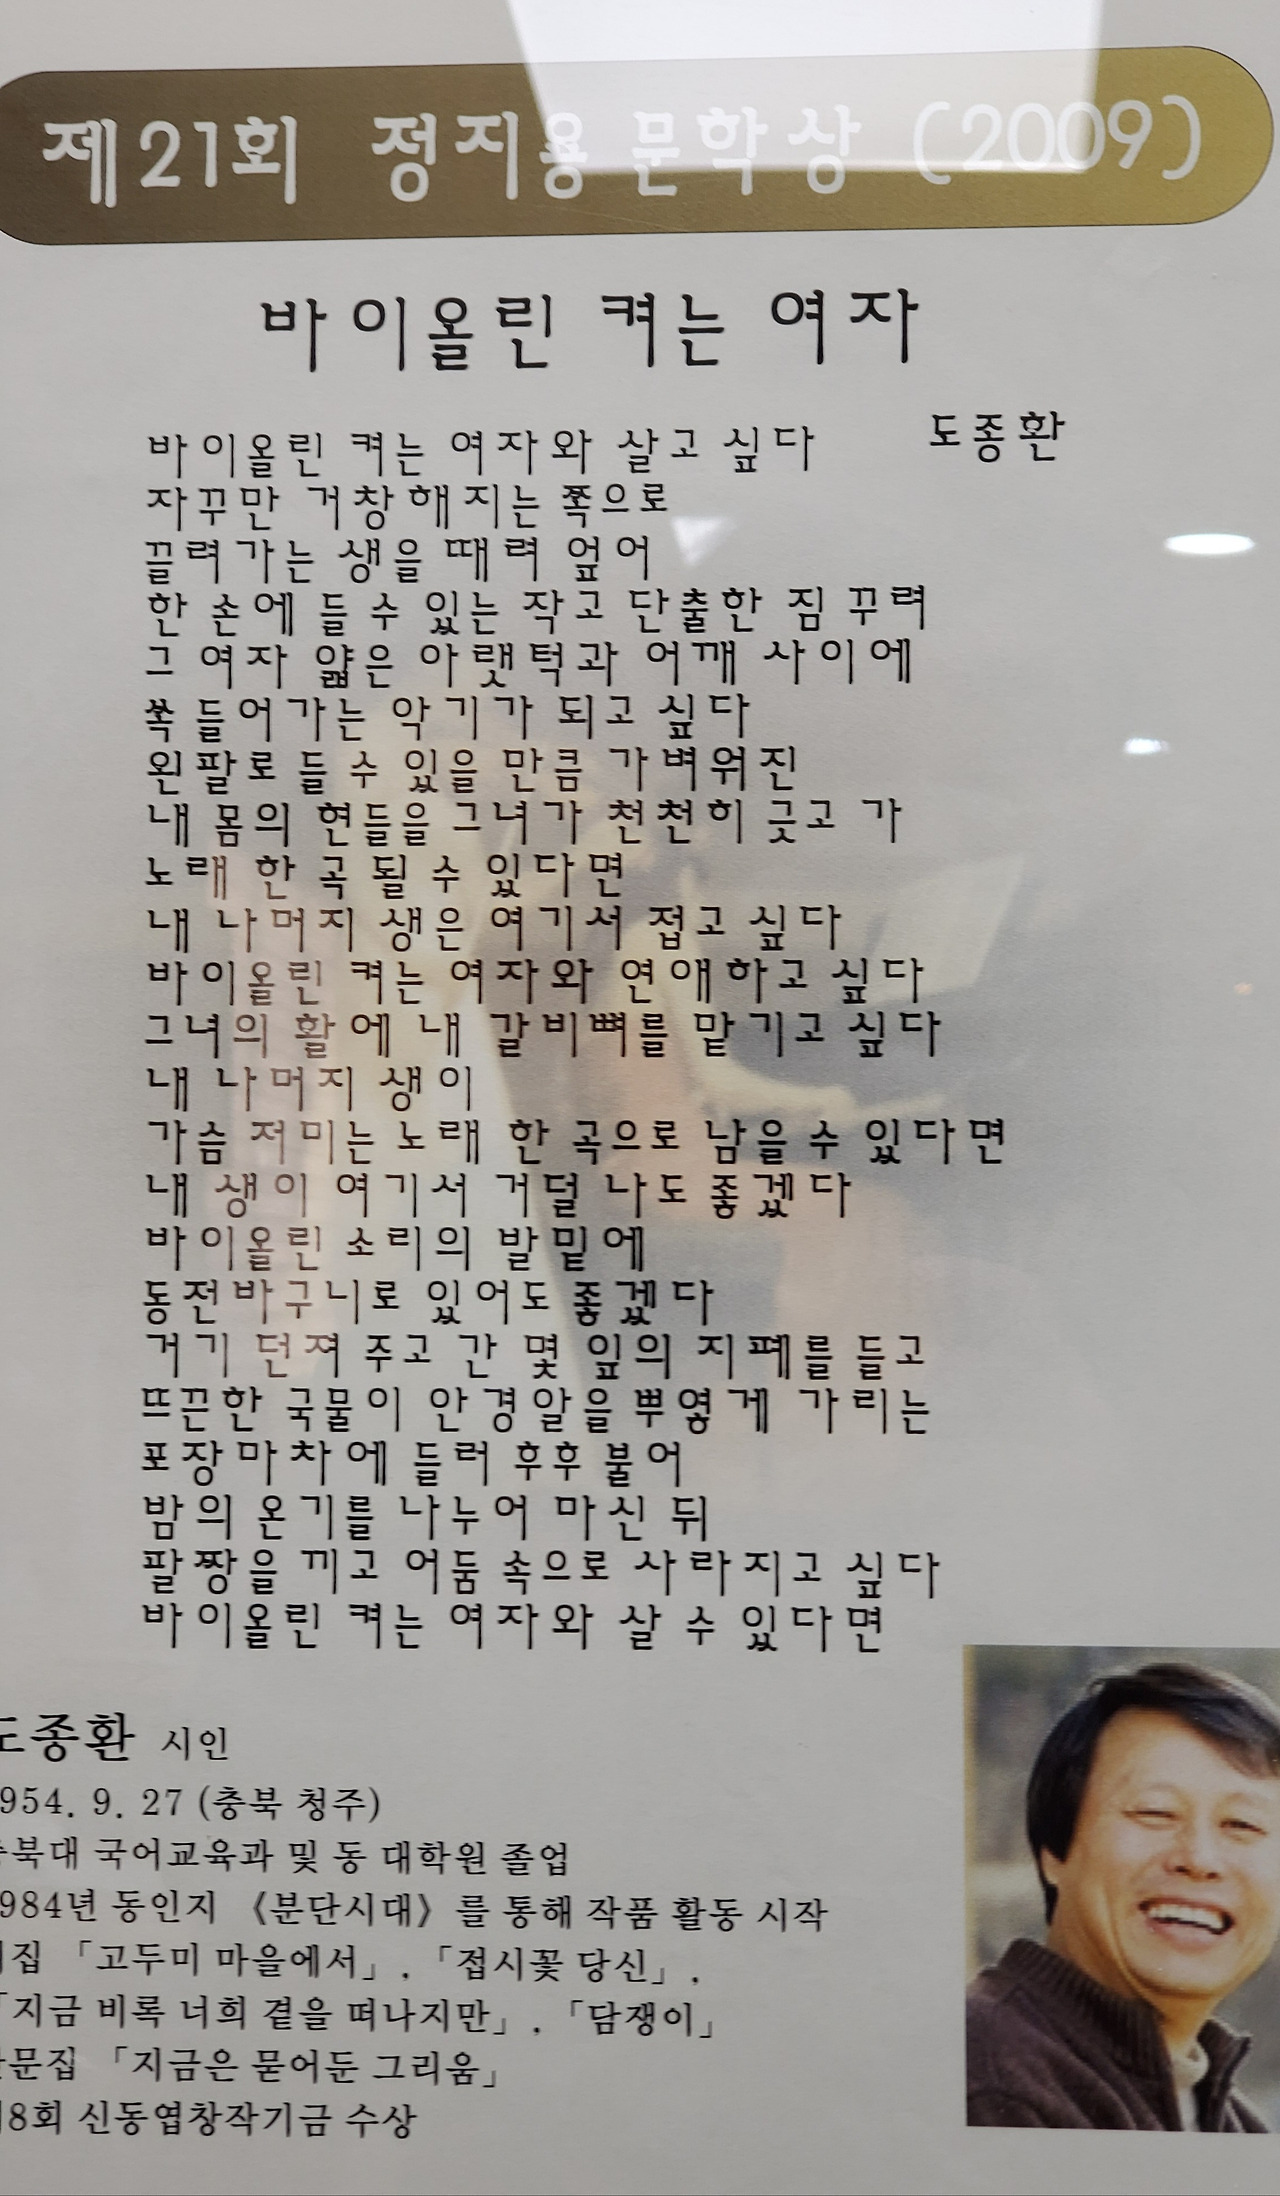 제21회 정지용 문학상 (2009)
바이올린 켜는 여자
도종환
바이올린 켜는 여자와 살고 싶다
자꾸만 거창해지는 쪽으로
끌려가는 생을 때려 엎어
한 손에 들 수 있는 작고 단출한 짐 꾸려
그 여자 얇은 아랫턱과 어깨 사이에
쏙 들어가는 악기가 되고 싶다
왼팔로 들 수 있을 만큼 가벼워진
내 몸의 현들을 그녀가 천천히 긋고 가
노래 한 곡 될 수 있다면
내 나머지 생은 여기서 접고 싶다
바이올린 켜는 여자와 연애하고 싶다
그녀의 활에 내 갈비뼈를 맡기고 싶다
내 나머지 생이
가슴 저미는 노래 한 곡으로 남을 수 있다면
내 생이 여기서 거덜 나도 좋겠다
바이올린 소리의 발밑에
동전바구니로 있어도 좋겠다
거기 던져 주고 간 몇 잎의 지폐를 들고
뜨끈한 국물이 안경알을 뿌옇게 가리는
포장마차에 들러 후후 불어
밤의 온기를 나누어 마신 뒤
팔짱을 끼고 어둠 속으로 사라지고 싶다
바이올린 켜는 여자와 살 수 있다면
도종환 시인
954. 9. 27 (충북 청주)
북대 국어교육과 및 동 대학원 졸업
984년 동인지 《분단시대》를 통해 작품 활동 시작
집 「고두미 마을에서」, 「접시꽃 당신」,
「지금 비록 너희 곁을 떠나지만」, 「담쟁이」
문집 「지금은 묻어둔 그리움」
8회 신동엽창작기금 수상